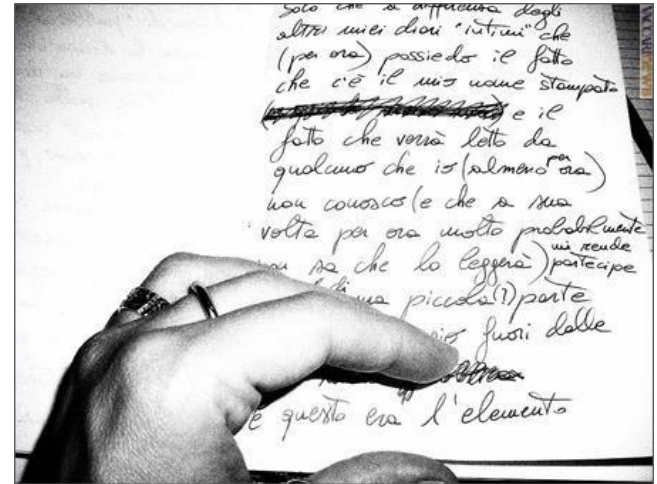 Solo che a differenza degli
altri miei diari "intimi" che
(per ora) possiedo il fatto
che c'è il mio nome stampato
e il
fatto che verrà letto da
qualcuno che io (almeno per ora)
non conosco (e che a sua
volta per ora molto probabilmente
non sa che lo leggerà) mi rende partecipe
di una piccola (?) parte
fuori dalle
e questo era l'elemento